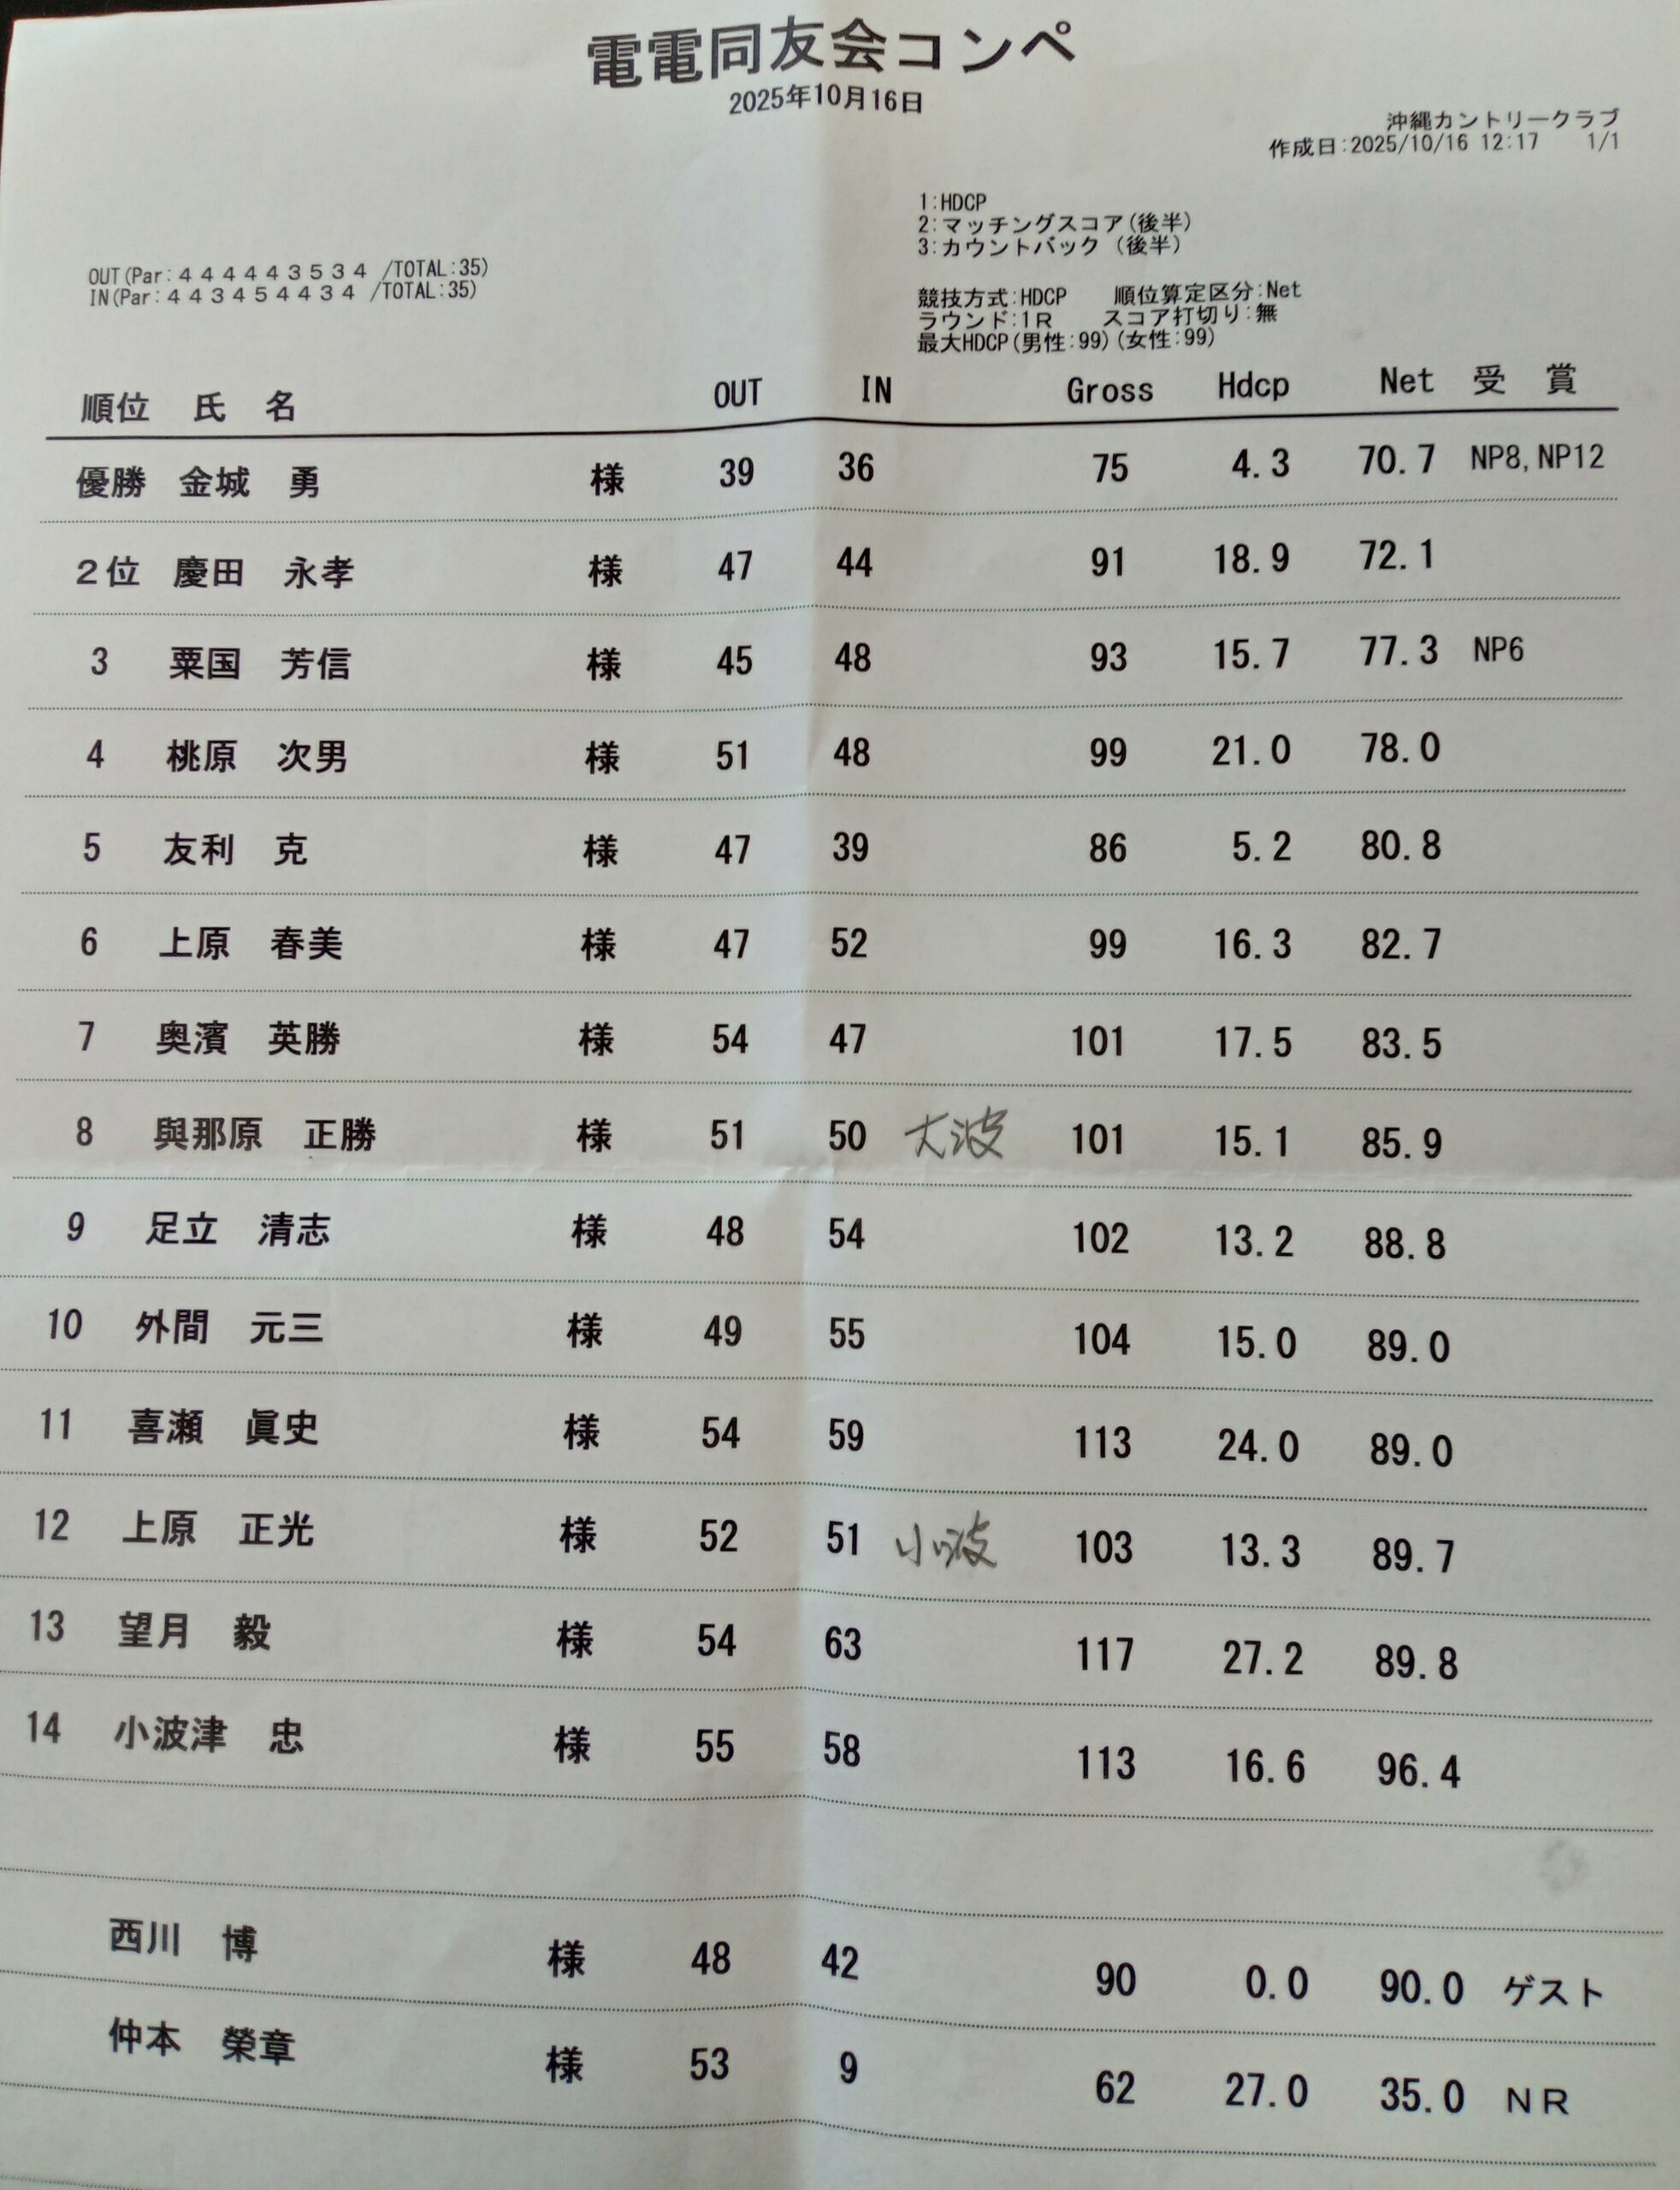 電電同友会コンペ
2025年10月16日
沖縄カントリークラブ
作成日:2025/10/16 12:17 1/1
1:HDCP
2:マッチングスコア(後半)
3:カウントバック (後半)
OUT(Par:4 4 4 4 4 3 5 3 4 /TOTAL:35)
IN(Par:4 4 3 4 5 4 4 3 4 /TOTAL:35)
競技方式:HDCP 順位算定区分:Net
ラウンド:1R スコア打切り:無
最大HDCP(男性:99)(女性:99)
順位 氏 名 OUT IN Gross Hdcp Net 受 賞
優勝 金城 勇 様 39 36 75 4.3 70.7 NP8,NP12
2位 慶田 永孝 様 47 44 91 18.9 72.1
3 粟国 芳信 様 45 48 93 15.7 77.3 NP6
4 桃原 次男 様 51 48 99 21.0 78.0
5 友利 克 様 47 39 86 5.2 80.8
6 上原 春美 様 47 52 99 16.3 82.7
7 奥濱 英勝 様 54 47 101 17.5 83.5
8 與那原 正勝 様 51 50 大波 101 15.1 85.9
9 足立 清志 様 48 54 102 13.2 88.8
10 外間 元三 様 49 55 104 15.0 89.0
11 喜瀬 眞史 様 54 59 113 24.0 89.0
12 上原 正光 様 52 51 小波 103 13.3 89.7
13 望月 毅 様 54 63 117 27.2 89.8
14 小波津 忠 様 55 58 113 16.6 96.4
西川 博 様 48 42 90 0.0 90.0 ゲスト
仲本 榮章 様 53 9 62 27.0 35.0 NR